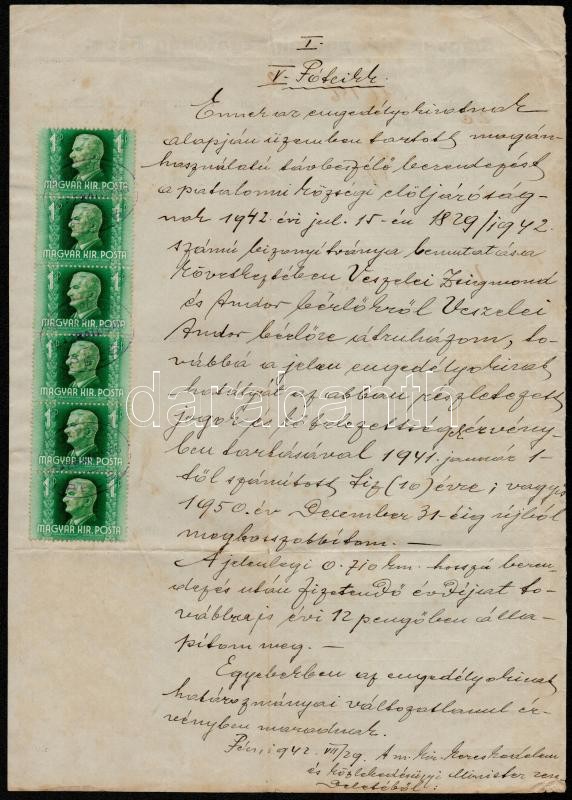 I.
V. Pótcikk.
Ennek az engedélyokiratnak
alapján üzemben tartott magán-
használatú távbeszélő berendezést
a patalomi községi elöljáróság-
nak 1942. évi jul. 15-én 1829/1942.
számú bizonyitványa bemutatása
következtében Veszelei Zsigmond
és Andor bérlőkről Veszelei
Andor bérlőre átruházom, to-
vábbá a jelen engedélyokirat
hatályát az abban részletezett
jogok és kötelezettség érvény-
ben tartásával 1941. január 1-
től számított tíz (10) évre, vagyis
1950. év December 31-éig újból
meghosszabbítom. —
A jelenlegi 0.710 km. hosszú beren-
dezés után fizetendő évdíjat to-
vábbra is évi 12 pengőben álla-
pítom meg. —
Egyebekben az engedélyokirat
határozmányai változatlanul ér-
vényben maradnak.
Pécs, 1942. VII/29. A m. kir. kereskedelem
és közlekedésügyi Minister ren-
deletéből:
1 1
MAGYAR KIR. POSTA
1 1
MAGYAR KIR. POSTA
1 1
MAGYAR KIR. POSTA
1 1
MAGYAR KIR. POSTA
1 1
MAGYAR KIR. POSTA
1 1
MAGYAR KIR. POSTA
darabanth